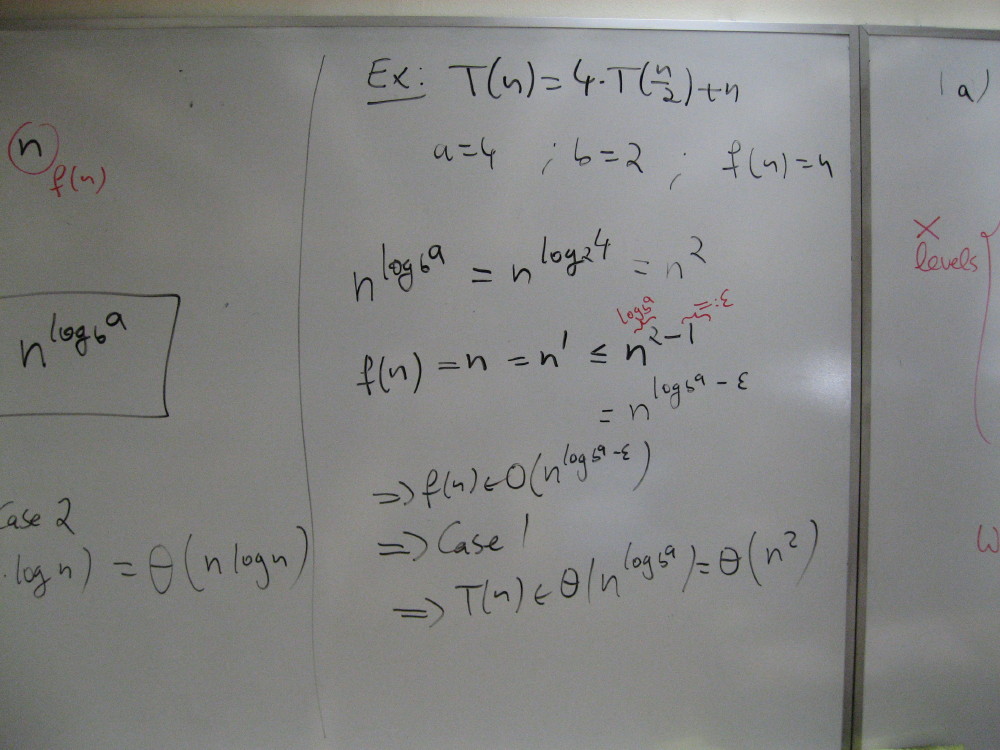 n
f(n)
n^{log_b a}
Case 2
· log n) = Θ(n log n)
Ex: T(n) = 4·T(n/2) + n
a=4 ; b=2 ; f(n)=n
n^{log_b a} = n^{log_2 4} = n^2
log_b a =:ε
f(n) = n = n^1 ≤ n^{2-1}
= n^{log_b a - ε}
⇒ f(n) ∈ O(n^{log_b a - ε})
⇒ Case 1
⇒ T(n) ∈ Θ(n^{log_b a}) = Θ(n^2)
(a)
X
levels